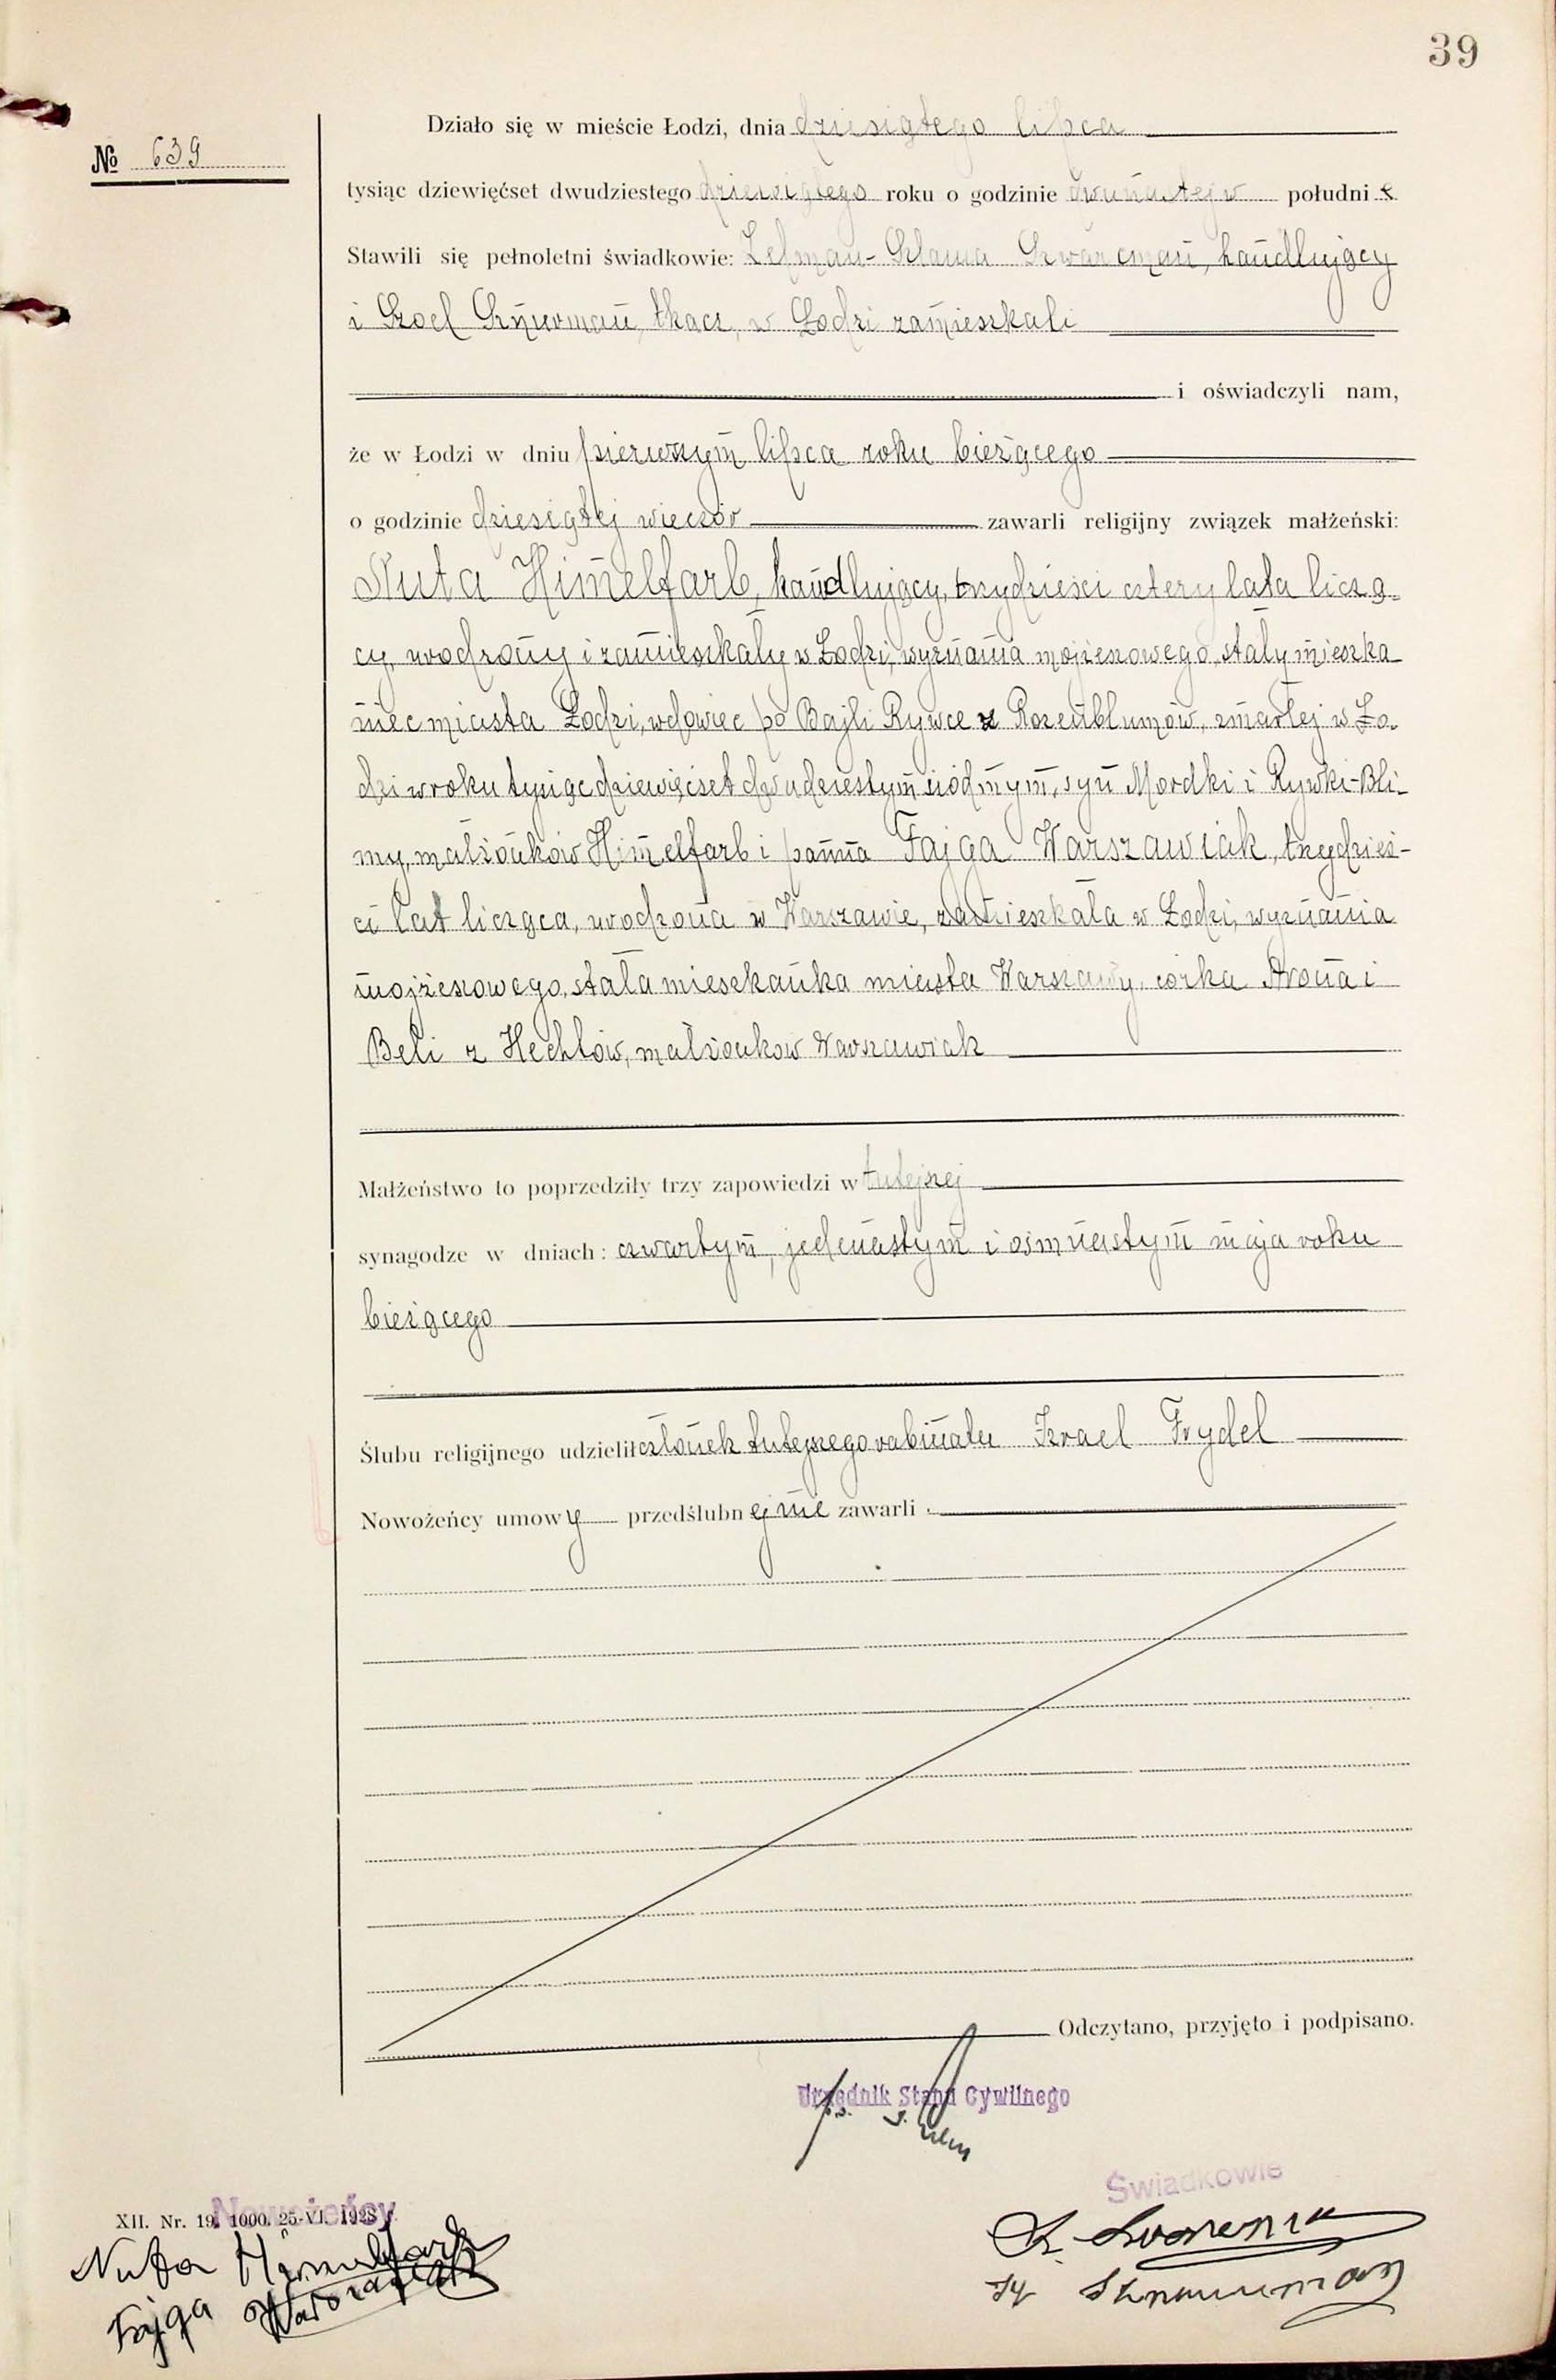 39
№ 639
Działo się w mieście Łodzi, dnia dziesiątego lipca
tysiąc dziewięćset dwudziestego dziewiątego roku o godzinie dwunastej w południe
Stawili się pełnoletni świadkowie: Szwarcman, handlujący
i Szoel Sznurman, tkacz, w Łodzi zamieszkali
i oświadczyli nam,
że w Łodzi w dniu pierwszym lipca roku bieżącego
o godzinie dziesiątej wieczór zawarli religijny związek małżeński:
Nuta Himelfarb, handlujący, trzydzieści cztery lata liczą-
cy, urodzony i zamieszkały w Łodzi, wyznania mojżeszowego, stały mieszka-
niec miasta Łodzi, wdowiec po Bajli Rywce z Rozenblumów, zmarłej w Ło-
dzi w roku tysiąc dziewięćset dwudziestym siódmym, syn Mordki i Rywki-Bli-
my, małżonków Himelfarb i panna Fajga Warszawiak, trzydzieś-
ci lat licząca, urodzona w Warszawie, zamieszkała w Łodzi, wyznania
mojżeszowego, stała mieszkanka miasta Warszawy, córka Arona i
Beli z Hechtów, małżonków Warszawiak
Małżeństwo to poprzedziły trzy zapowiedzi w tutejszej
synagodze w dniach: czwartym, jedenastym i osmnastym maja roku
bieżącego
Ślubu religijnego udzielił członek tutejszego rabinatu Izrael Frydel
Nowożeńcy umowy przedślubnej nie zawarli.
Odczytano, przyjęto i podpisano.
Urzędnik Stanu Cywilnego
Świadkowie
Nowożeńcy
XII. Nr. 19. 1000. 25-VI. 1928
Nuta Himelfarb
Fajga Warszawiak